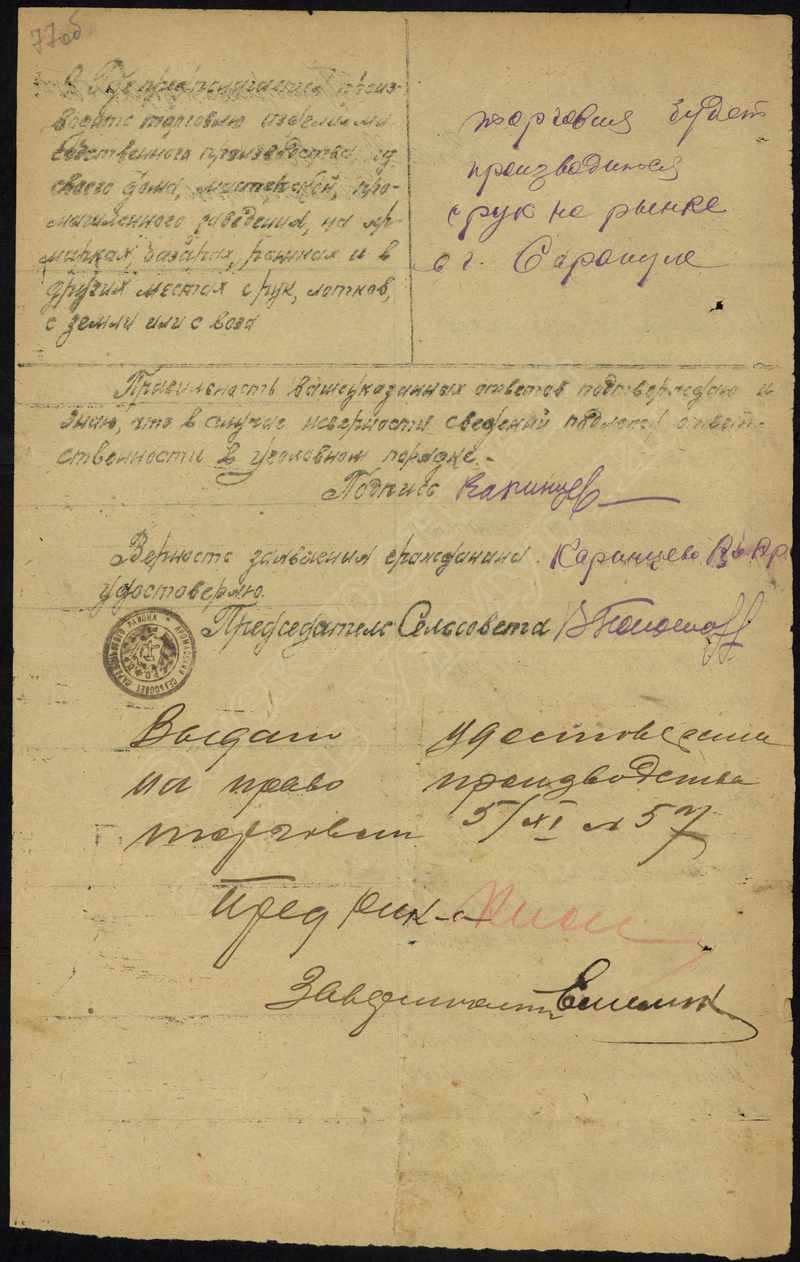 77об
в Где предполагается произ-
водить торговлю изделиями
собственного производства, из
своего дома, мастерской, про-
мышленного заведения, на яр-
марках, базарах, рынках и в
других местах с рук, лотков,
с земли или с воза
торговля будет
производится
с рук на рынке
в г. Сарапуле
Правильность вышеуказанных ответов подтверждаю и
знаю, что в случае неверности сведений подлежу ответ-
ственности в уголовном порядке.-
Подпись Каринцев
Верность заявления гражданина Каринцева
удостоверяю.
Председатель Сельсовета
Выдать удостоверение
на право производства
торговли 5/XI № 57
Пред рик-а